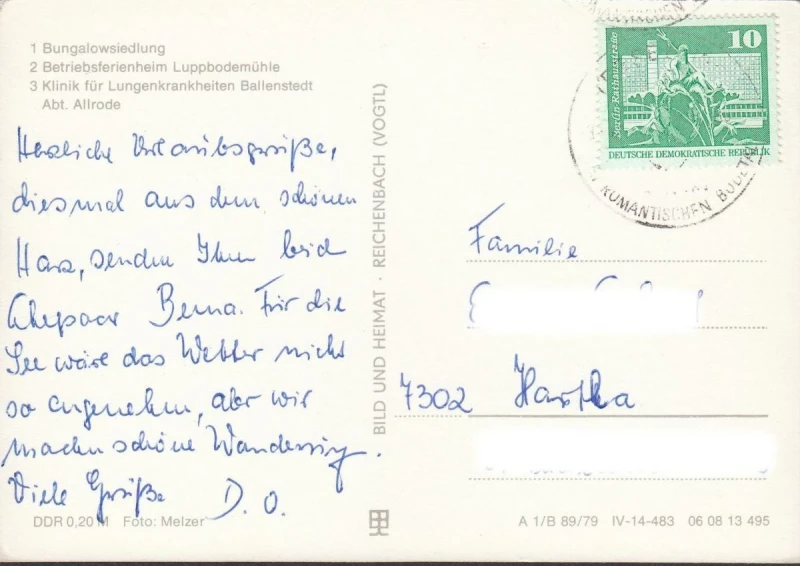 1 Bungalowsiedlung
2 Betriebsferienheim Luppbodemühle
3 Klinik für Lungenkrankheiten Ballenstedt
Abt. Allrode
Herzliche Urlaubsgrüße,
diesmal aus dem schönen
Harz, senden Ihnen
Ehepaar Berna. Für die
See wäre das Wetter nicht
so angenehm, aber wir
machen schöne Wanderung.
Viele Grüße D. O.
DDR 0,20 M Foto: Melzer
BILD UND HEIMAT · REICHENBACH (VOGTL)
10
Berlin-Rathausstraße
DEUTSCHE DEMOKRATISCHE REPUBLIK
ROMANTISCHEN
ROMANTISCHEN BODETAL
Familie
7302 Hartha
A 1/B 89/79 IV-14-483 06 08 13 495